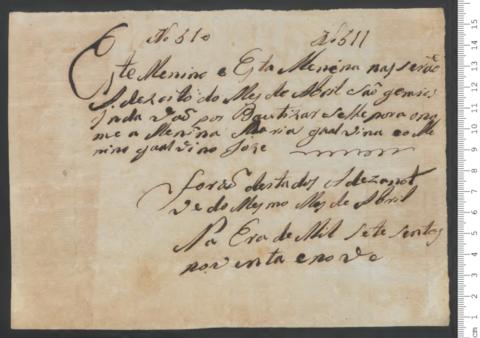 No 510 No 511
Este Menino e Esta Menina nascerão
A dezoito do Mes de Abril São gemios
Inda vão por Bautizar se lhe pora o no
me a Menina Maria gualvina e o Me
nino gualvino Joze
forão deitados A dezanot
ve do Mesmo Mes de Abril
Na Era de Mil sete sentos
noventa e nove